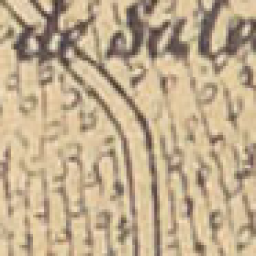 de Sala